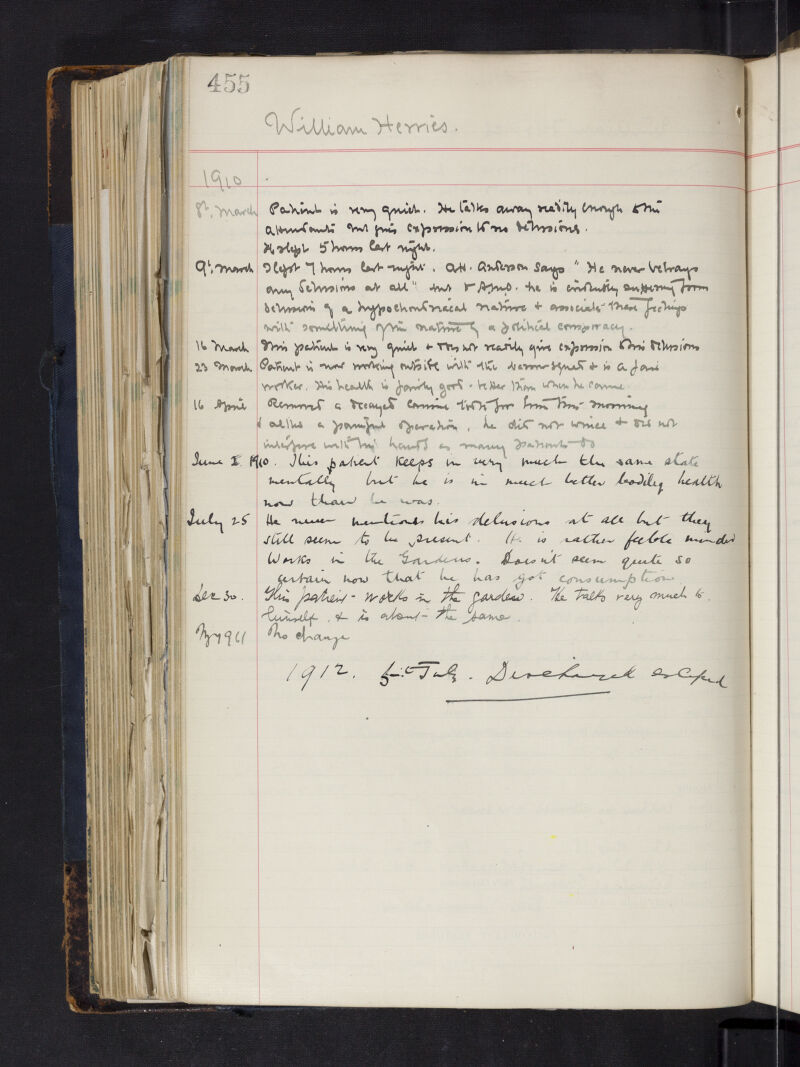 455
William Herries.
1910
8th. March Patient is very quiet. He talks away readily enough to the
attendants but gives expression to no delusions.
He slept 5 hours last night.
9th. March Slept 7 hours last night. Att. Anderson says "He never betrays
any delusions at all" but he is evidently suffering from
delusions of a hypochondriacal nature & associates these feelings
with something of the nature of a political conspiracy.
16 March This patient is very quiet & does not readily give expression to his delusions
23 March Patient is now working outside with the barrow squad & is a fair
worker. His health is fairly good - better than when he came.
16 April Removed a decayed canine tooth for him this morning
& altho a painful operation, he did not wince & did not
interfere with my hands as many patients do
June 1910. This patient keeps in very much the same state
mentally but he is in much better bodily health
now than he was.
July 25 He never mentions his delusions at all but they
still seem to be present. He is rather feeble minded
Works in the Gardens. Doesn't seem quite so
certain now that he has got consumption
Dec 30. This patient works in the garden. He talks very much to
himself. & is about the same.
1911 No change
1912. 5th July. Discharged escaped